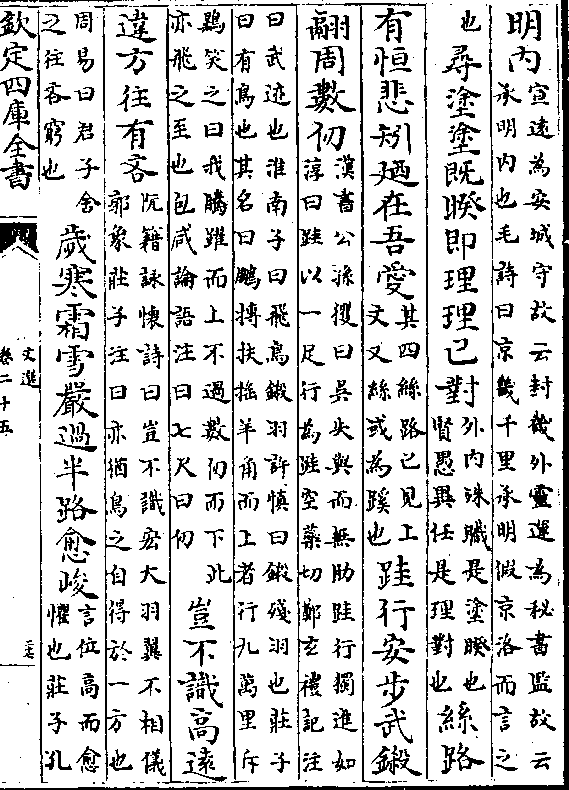 明内宣遠為安城守故云封畿外靈運為秘書監故云
承明内也毛詩曰京畿千里承明假京洛而言之
也尋塗塗既暌即理理已對外内殊職是塗暌也
賢愚異任是理對也絲路
有恒悲矧廼在吾愛其四絲路已見上
文又絲或為蹊也跬行安步武鎩
翮周數仞漢書公孫玃曰吳失與而無助跬行獨進如
淳曰跬以一足行為跬空蘂切鄭玄禮記注
曰武迹也淮南子曰飛鳥鎩羽許慎曰鎩殘羽也莊子
曰有鳥也其名曰鵬摶扶揺羊角而上者行九萬里斥
鷃笑之曰我騰躍而上不過數仞而下此
亦飛之至也包咸論語注曰七尺曰仞豈不識高遠
違方往有吝阮籍詠懷詩曰豈不識宏大羽翼不相儀
郭象莊子注曰亦猶鳥之自得於一方也
周易曰君子舍
之往吝窮也歲寒霜雪嚴過半路愈峻言位高而愈
懼也莊子孔
欽定四庫全書
文選
卷二十五